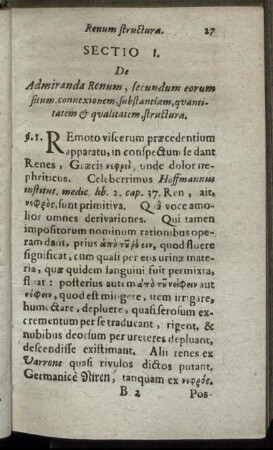 Renum structura. 27
SECTIO I.
De
Admiranda Renum, secundum eorum
situm, connexionem, substantiam, qvanti-
tatem & qvalitatem, structura.
§. 1. REmoto viscerum præcedentium
apparatu, in conspectum se dant
Renes, Græcis νεφροὶ, unde dolor ne-
phriticus. Celeberrimus Hoffmannus
institut. medic. lib. 2. cap. 37. Ren, ait,
νεφρὸς, sunt primitiva. Quâ voce amo-
lior omnes derivationes. Qui tamen
impositorum nominum rationibus ope-
ram dant, prius ἀπὸ τοῦ ῥέειν, quod fluere
significat, cum quasi per eos urinæ mate-
ria, quæ quidem sanguini fuit permixta,
fluat: posterius autem ἀπὸ τοῦ νείφειν aut
νέφειν, quod est mingere, item irrigare,
humectare, depluere, quasi serosum ex-
crementum per se traducant, rigent, &
nubibus deorsum per ureteres depluant,
descendisse existimant. Alii renes ex
Varrone quasi rivulos dictos putant.
Germanicè Niren, tanquam ex νεφρός.
B 2 Pos-